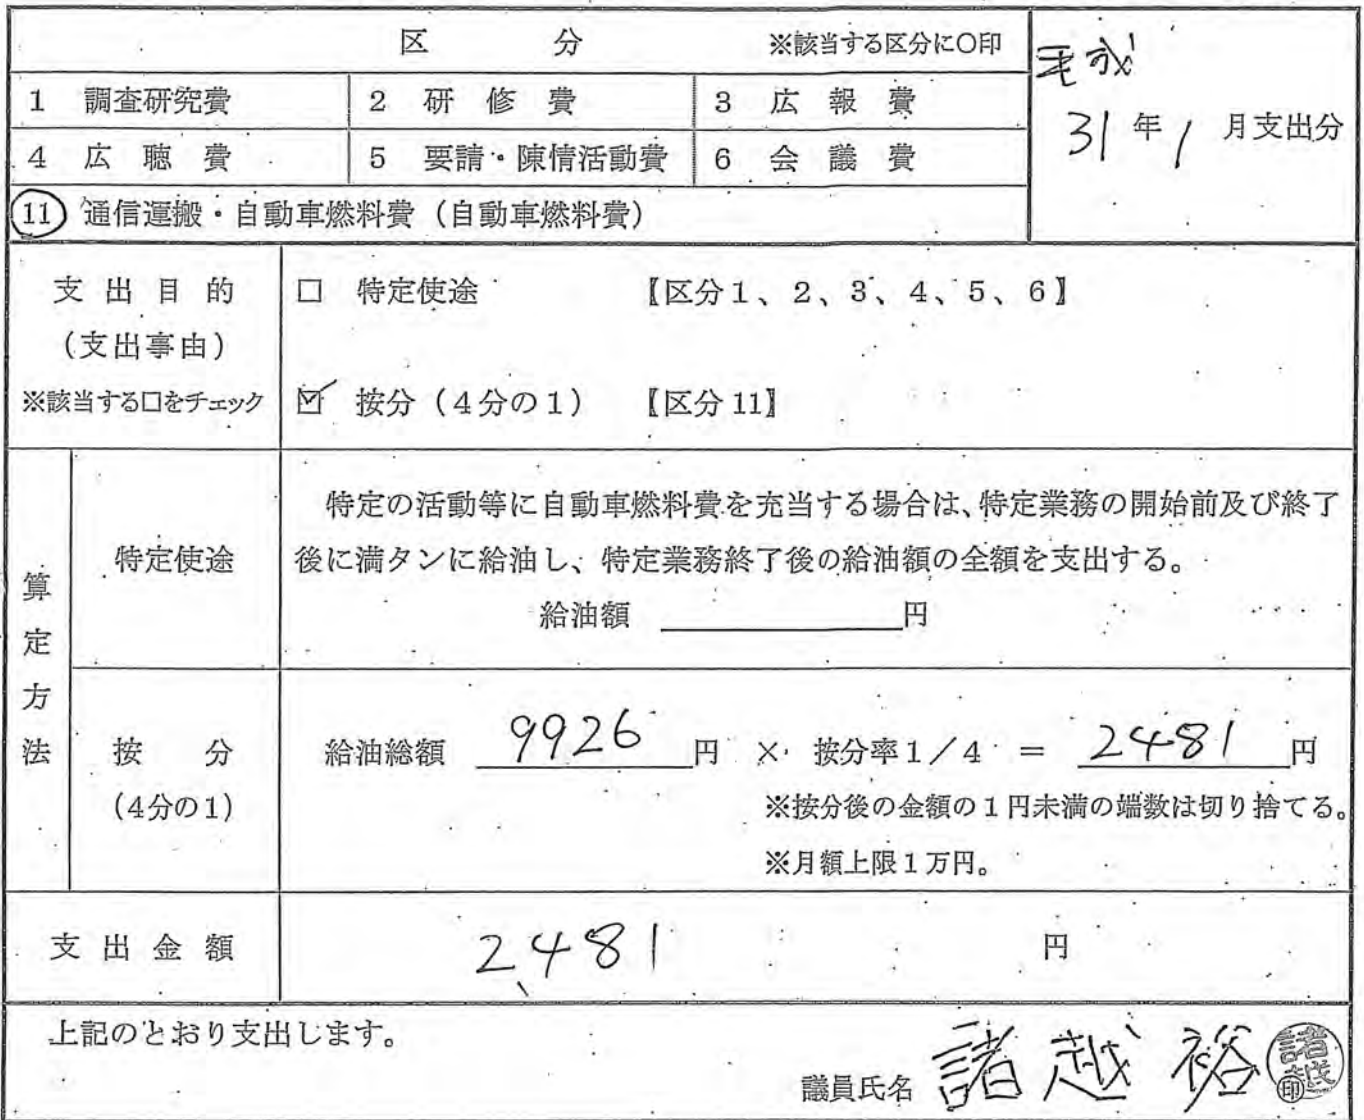 区 分 ※該当する区分に○印
平成
31年1月支出分
1 調査研究費 2 研修費 3 広報費
4 広聴費 5 要請・陳情活動費 6 会議費
11 通信運搬・自動車燃料費(自動車燃料費)
支出目的
(支出事由)
※該当する口をチェック
□ 特定使途 【区分1、2、3、4、5、6】
☑ 按分(4分の1) 【区分11】
算定方法
特定使途
特定の活動等に自動車燃料費を充当する場合は、特定業務の開始前及び終了
後に満タンに給油し、特定業務終了後の給油額の全額を支出する。
給油額 円
按分
(4分の1)
給油総額 9926 円 × 按分率1/4 = 2481 円
※按分後の金額の1円未満の端数は切り捨てる。
※月額上限1万円。
支出金額 2481 円
上記のとおり支出します。
議員氏名 諸越 裕 諸越 印